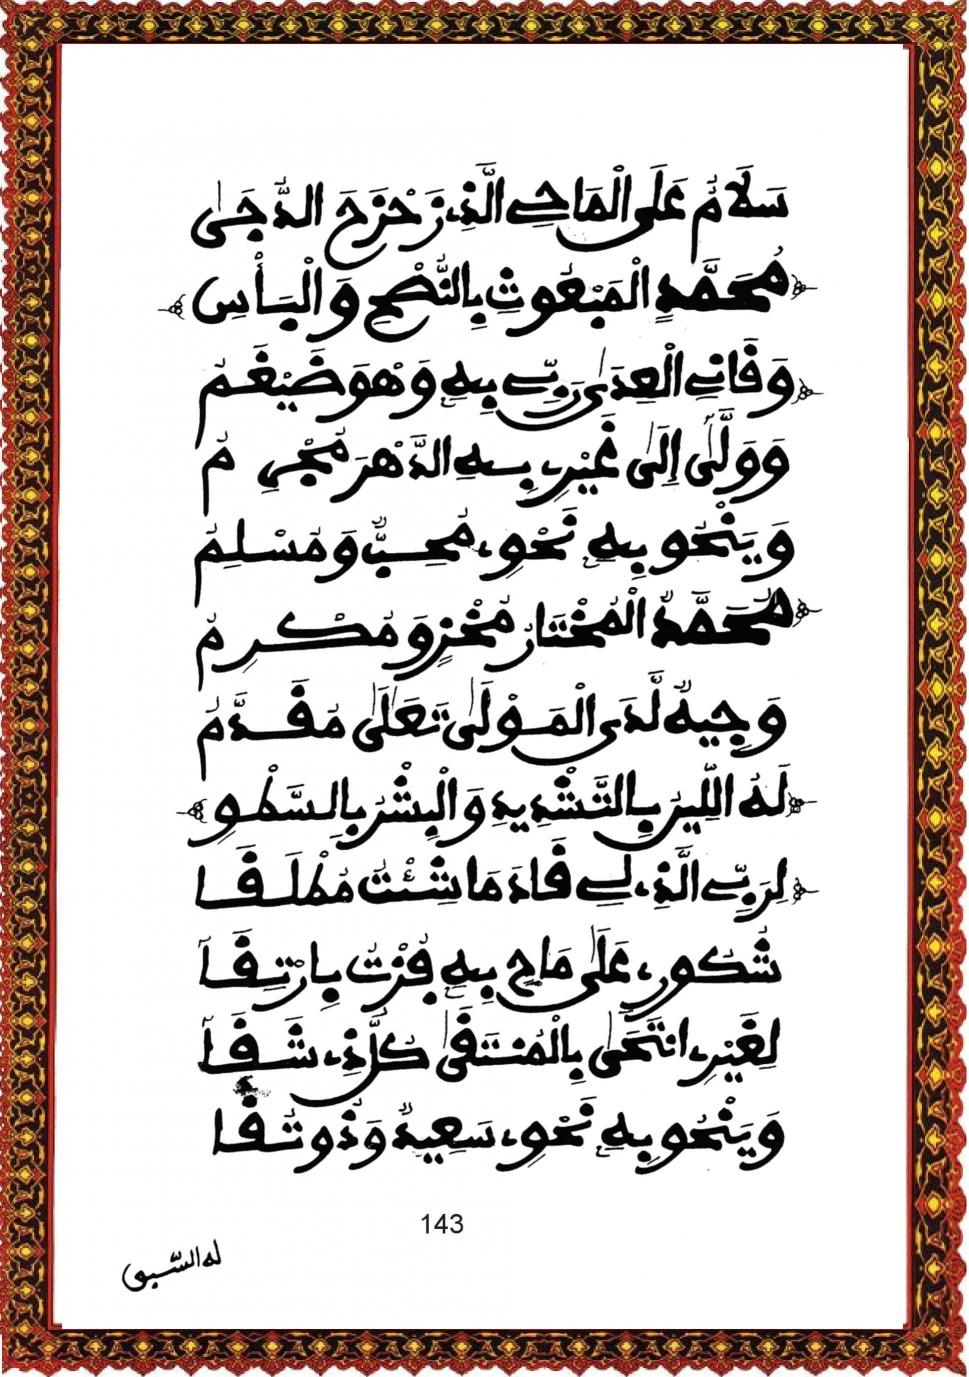 سَلَامٌ عَلَى الْمَاحِي الَّذِي زَحْزَحَ الدُّجَى
مُحَمَّدٍ الْمَبْعُوثِ بِالنُّصْحِ وَالْبَأْسِ
وَقَانِي الْعِدَى رَبِّي بِهِ وَهْوَ ضَيْغَمُ
وَوَلَّى إِلَى غَيْرِي بِهِ الدَّهْرَ مُجْرِمُ
وَيَنْحُو بِهِ نَحْوِي مُحِبٌّ وَمُسْلِمُ
مُحَمَّدٌ الْمُخْتَارُ مُخْزٍ وَمُكْرِمُ
وَجِيهٌ لَّدَى الْمَوْلَى تَعَالَى مُقَدَّمُ
لَهُ اللِّينُ بِالتَّشْدِيدِ وَالْبِشْرُ بِالسَّطْوِ
لِرَبِّي الَّذِي لِي قَادَ مَا شِئْتُ مُطْلَقَا
شُكُورِي عَلَى مَاحٍ بِهِ فُزْتُ بِارْتِقَا
لِغَيْرِي انْتَحَى بِالْمُنْتَقَى كُلُّ ذِي شَقَا
وَيَنْحُو بِهِ نَحْوِي سَعِيدٌ وَذُو تُقَا
143
له السّبق